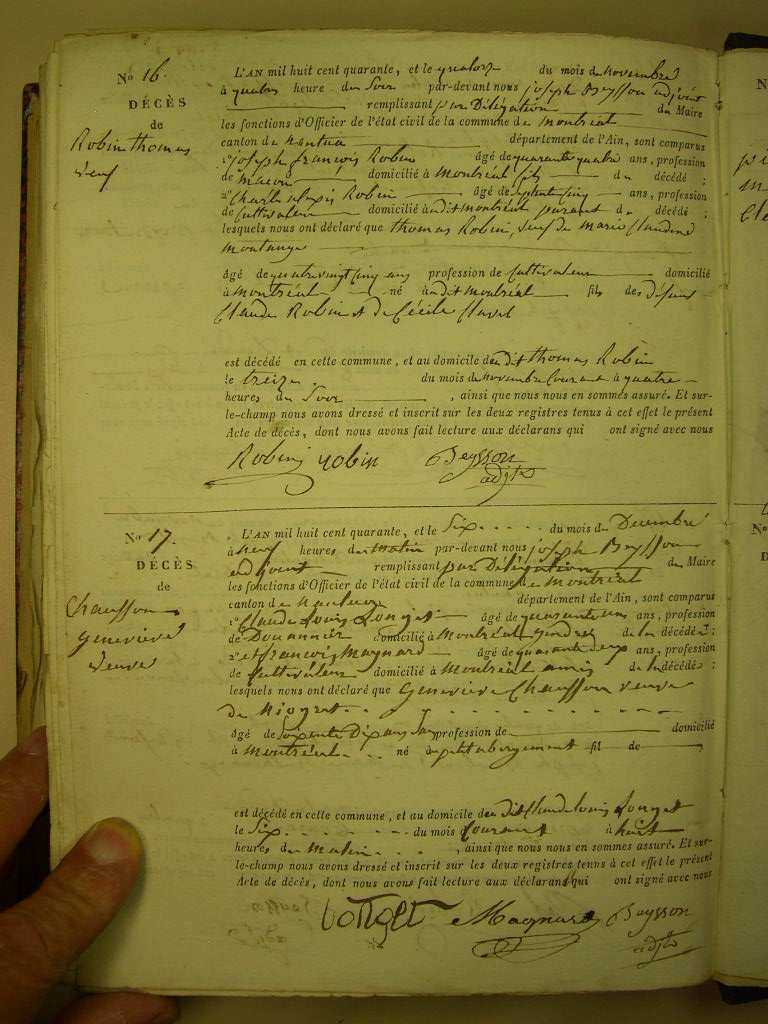 No 16.
DÉCÈS
de
Robin thomas
veuf
L'AN mil huit cent quarante, et le quatorze du mois de novembre
à quatre heure du Soir par-devant nous joseph Beysson adjoint
remplissant par Délégation du Maire
les fonctions d'Officier de l'état civil de la commune de montréal
canton de nantua département de l'Ain, sont comparus
1° joseph françois Robin âgé de quarante quatre ans, profession
de macon domicilié à montréal fils du décédé ;
2° Charle alexis Robin âgé de ans, profession
de Cultivateur domicilié à udit montréal parent du décédé ;
lesquels nous ont déclaré que thomas Robin, veuf de marie Claudine
montange
âgé de quatrevingt cinq ans profession de Cultivateur domicilié
à montréal né à udit montréal fils des défunt
Claude Robin et de Cécile Clavel
est décédé en cette commune, et au domicile du dit thomas Robin
le treize du mois de novembre Courant à quatre
heures du Soir , ainsi que nous nous en sommes assuré. Et sur-
le-champ nous avons dressé et inscrit sur les deux registres tenus à cet effet le présent
Acte de décès, dont nous avons fait lecture aux déclarans qui ont signé avec nous
Robin robin Beysson
adjt
No 17.
DÉCÈS
de
Chausson
Geneviève
veuve
L'AN mil huit cent quarante, et le Six du mois de Décembre
à neuf heures du matin par-devant nous joseph Beysson
adjoint remplissant par Délégation du Maire
les fonctions d'Officier de l'état civil de la commune de montréal
canton de nantua département de l'Ain, sont comparus
1° Claude Louis Longet âgé de quarante ans, profession
de Douannier domicilié à montréal gendre de la décédée ;
2° et françois Magnard âgé de quarante ans, profession
de Cultivateur domicilié à montréal amis de la décédée ;
lesquels nous ont déclaré que Geneviève Chausson veuve
de
âgé de Soixante Dix ans profession de domicilié
à montréal né à petit abergement fil de ,
est décédé en cette commune, et au domicile du dit Claude Louis Longet
le Six du mois Courant à huit
heures du matin , ainsi que nous nous en sommes assuré. Et sur-
le-champ nous avons dressé et inscrit sur les deux registres tenus à cet effet le présent
Acte de décès, dont nous avons fait lecture aux déclarans qui ont signé avec nous
Longet Magnard Beysson
adjt